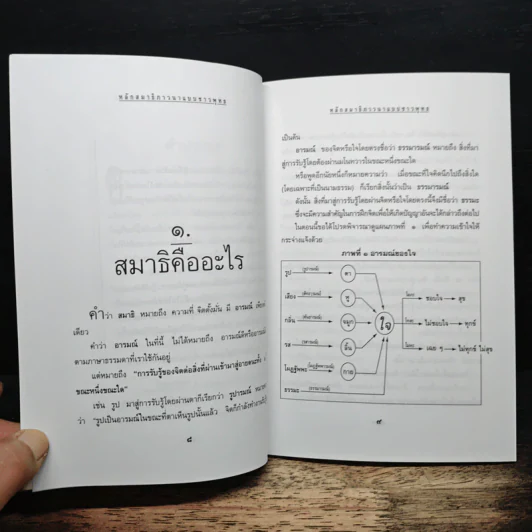 หลักสมาธิภาวนาแบบชาวพุทธ
๑.
สมาธิคืออะไร
คำว่า สมาธิ หมายถึง ความที่ จิตตั้งมั่น มี อารมณ์
เดียว
คำว่า อารมณ์ ในที่นี้ ไม่ได้หมายถึง
ตามภาษาธรรมดาที่เราใช้กันอยู่
แต่หมายถึง "การรับรู้ของจิตต่อสิ่งที่ผ่านเข้ามาสู่อายตนะทั้ง
ขณะหนึ่งขณะใด"
เช่น รูป มาสู่การรับรู้โดยผ่านตาก็เรียกว่า รูปารมณ์
ว่า "รูปเป็นอารมณ์ในขณะที่ตาเห็นรูปนั้นแล้ว
๘
หลักสมาธิภาวนาแบบชาวพุทธ
เป็นต้น
อารมณ์ ของจิตหรือใจโดยตรงชื่อว่า ธรรมารมณ์ หมายถึง สิ่งที่มา
สู่การรับรู้โดยต้องผ่านมโนทวารในขณะหนึ่งขณะใด
หรือพูดอีกนัยหนึ่งก็หมายความว่า เมื่อขณะที่ใจคิดนึกไปถึงสิ่งใด
(โดยเฉพาะที่เป็นนามธรรม) ก็เรียกสิ่งนั้นว่าเป็น ธรรมารมณ์
ดังนั้น สิ่งที่มาสู่การรับรู้โดยผ่านจิตหรือใจโดยตรงนี้จึงมีชื่อว่า ธรรมะ
ซึ่งจะมีความสำคัญในการฝึกจิตเพื่อให้เกิดปัญญาอันจะได้กล่าวถึงต่อไป
ในตอนนี้ขอให้โปรดพิจารณาดูแผนภาพที่ ๑ เพื่อทำความเข้าใจให้
กระจ่างแจ้งด้วย
ภาพที่ ๑ อารมณ์ของใจ
รูป (รูปารมณ์) ตา
เสียง (สัททารมณ์) หู
กลิ่น (คันธารมณ์) จมูก
รส (รสารมณ์) ลิ้น
โผฏฐัพพะ (โผฏฐัพพารมณ์) กาย
ธรรมะ (ธรรมารมณ์)
ใจ
ชอบใจ สุข
ไม่ชอบใจ ทุกข์
เฉย ๆ ไม่ทุกข์ ไม่สุข
๙